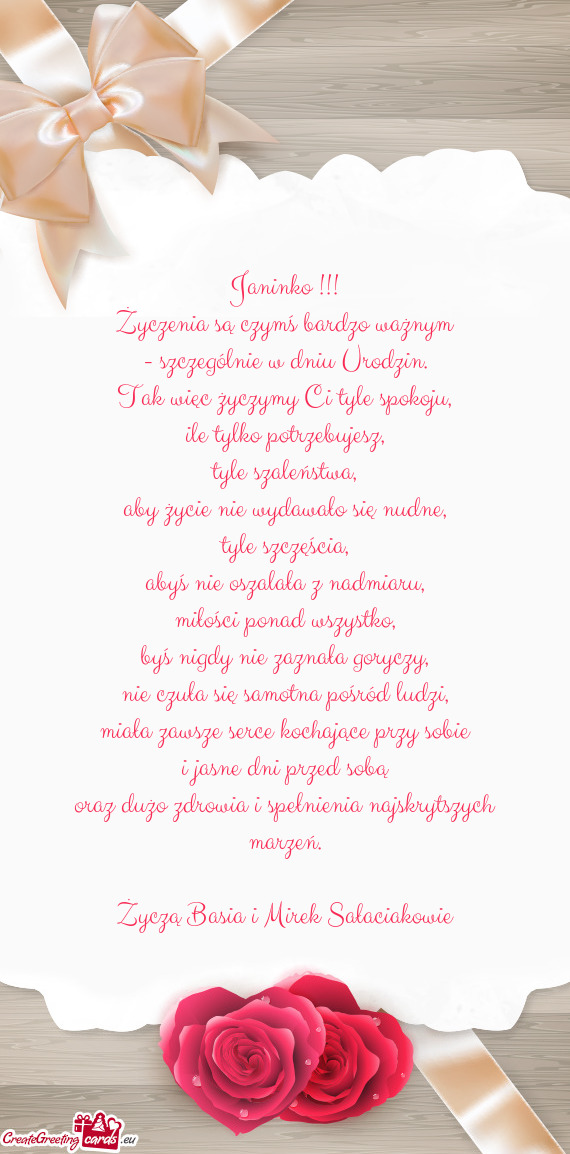 Janinko !!!
Życzenia są czymś bardzo ważnym
- szczególnie w dniu Urodzin.
Tak więc życzymy Ci tyle spokoju,
ile tylko potrzebujesz,
tyle szaleństwa,
aby życie nie wydawało się nudne,
tyle szczęścia,
abyś nie oszalała z nadmiaru,
miłości ponad wszystko,
byś nigdy nie zaznała goryczy,
nie czuła się samotna pośród ludzi,
miała zawsze serce kochające przy sobie
i jasne dni przed sobą
oraz dużo zdrowia i spełnienia najskrytszych
marzeń.
Życzą Basia i Mirek Sałaciakowie
CreateGreeting cards .eu